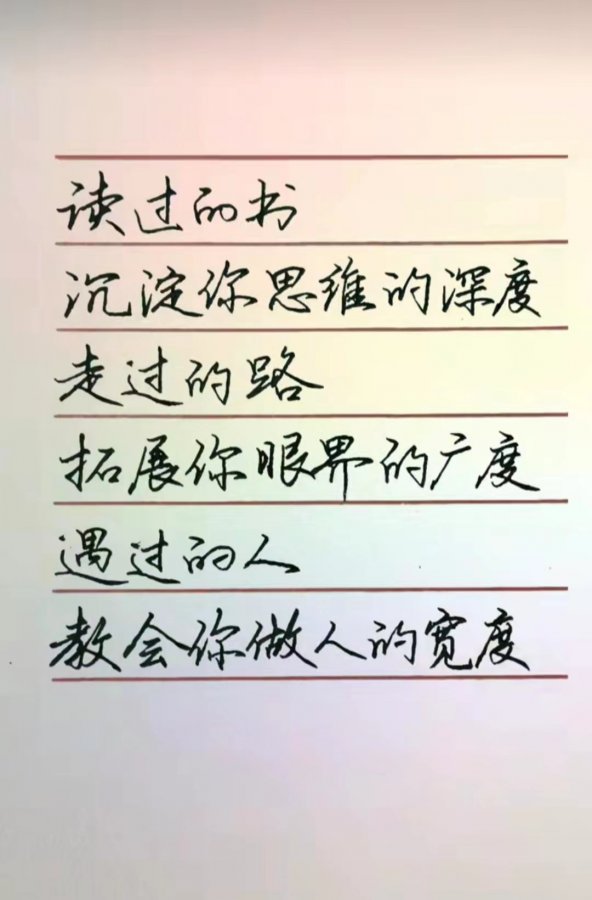 读过的书
沉淀你思维的深度
走过的路
拓展你眼界的广度
遇过的人
教会你做人的宽度